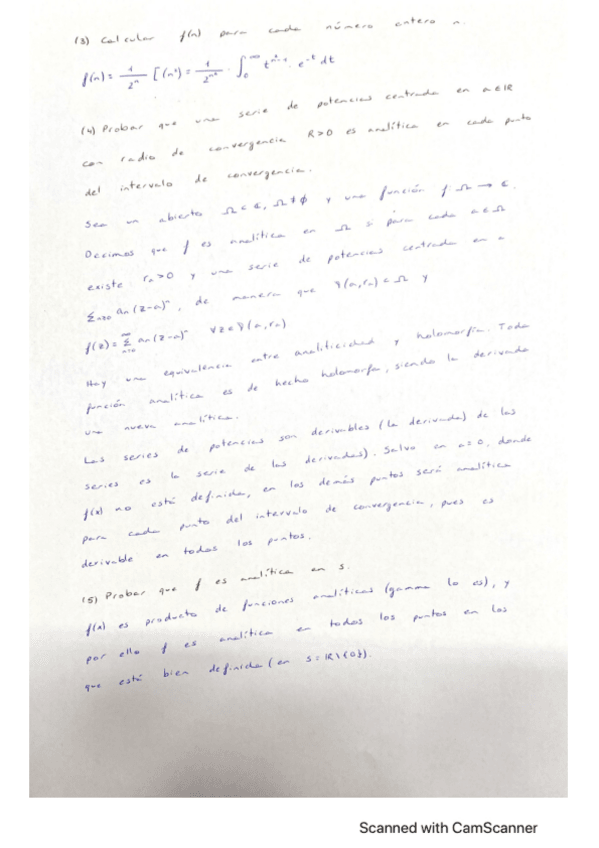 (3) Calcular f(n) para cada número entero n.
f(n) = 1/2ⁿ Γ(n²) = 1/2ⁿ · ∫₀^∞ t^(n²-1) · e^(-t) dt
(4) Probar que una serie de potencias centrada en a ∈ ℝ
con radio de convergencia R>0 es analítica en cada punto
del intervalo de convergencia.
Sea un abierto Ω ⊂ ℂ, Ω ≠ ∅ y una función f: Ω → ℂ.
Decimos que f es analítica en Ω si para cada a ∈ Ω
existe rₐ>0 y una serie de potencias centrada en a
Σn≥0 an (z-a)ⁿ, de manera que D(a,rₐ) ⊂ Ω y
f(z) = Σ an (z-a)ⁿ ∀z ∈ D(a,rₐ)
Hay una equivalencia entre analiticidad y holomorfía. Toda
función analítica es de hecho holomorfa, siendo la derivada
una nueva analítica.
Las series de potencias son derivables (la derivada) de las
series es la serie de las derivadas). Salvo en a=0, donde
f(x) no está definida, en los demás puntos será analítica
para cada punto del intervalo de convergencia, pues es
derivable en todos los puntos.
(5) Probar que f es analítica en S.
f(x) es producto de funciones analíticas (gamma lo es), y
por ello f es analítica en todos los puntos en los
que está bien definida (en S=ℝ\{0}).
Scanned with CamScanner